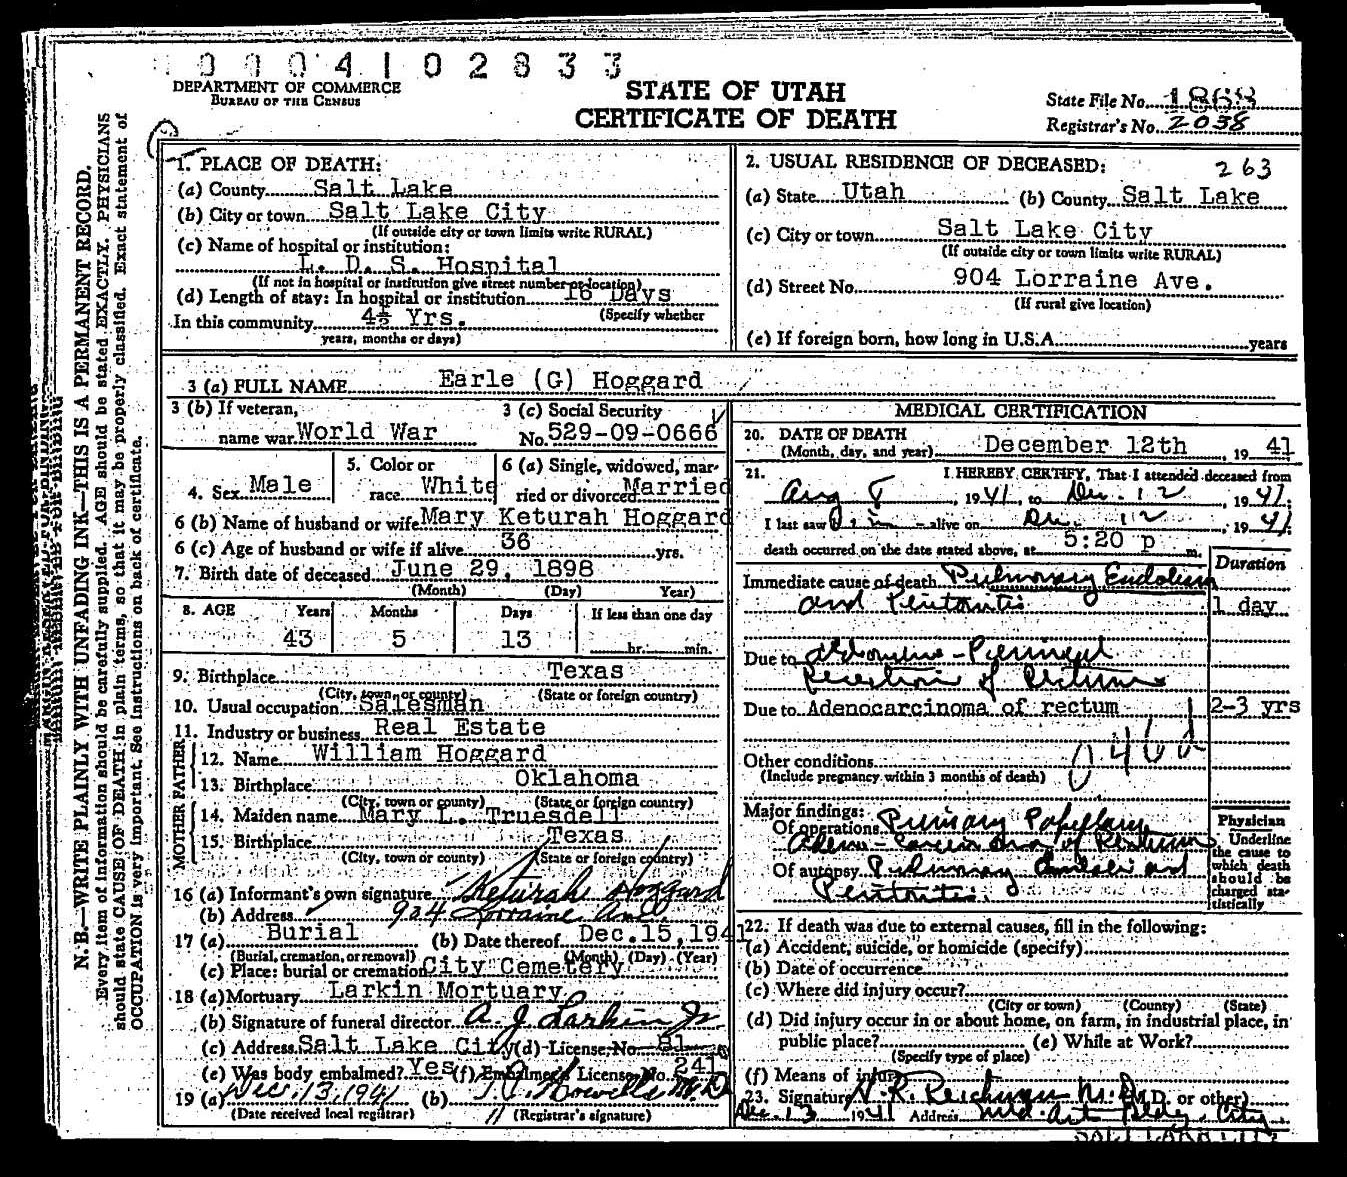 0004102833
DEPARTMENT OF COMMERCE
BUREAU OF THE CENSUS
STATE OF UTAH
CERTIFICATE OF DEATH
State File No. 1868
Registrar's No. 2038
N. B.—WRITE PLAINLY WITH UNFADING INK—THIS IS A PERMANENT RECORD.
Every item of information should be carefully supplied. AGE should be stated EXACTLY. PHYSICIANS
should state CAUSE OF DEATH in plain terms, so that it may be properly classified. Exact statement of
OCCUPATION is very important. See instructions on back of certificate.
1. PLACE OF DEATH:
(a) County Salt Lake
(b) City or town Salt Lake City
(If outside city or town limits write RURAL)
(c) Name of hospital or institution:
L. D. S. Hospital
(If not in hospital or institution give street number or location)
(d) Length of stay: In hospital or institution 16 Days
(Specify whether
In this community 4½ Yrs.
years, months or days)
2. USUAL RESIDENCE OF DECEASED:
263
(a) State Utah (b) County Salt Lake
(c) City or town Salt Lake City
(If outside city or town limits write RURAL)
(d) Street No. 904 Lorraine Ave.
(If rural give location)
(e) If foreign born, how long in U.S.A. years
3 (a) FULL NAME Earle (G) Hoggard
3 (b) If veteran,
name war World War
3 (c) Social Security
No. 529-09-0666
4. Sex Male
5. Color or
race White
6 (a) Single, widowed, mar-
ried or divorced Married
6 (b) Name of husband or wife Mary Keturah Hoggard
6 (c) Age of husband or wife if alive 36 yrs.
7. Birth date of deceased June 29, 1898
(Month) (Day) Year)
8. AGE Years Months Days If less than one day
43 5 13 hr. min.
9. Birthplace Texas
(City, town, or county) (State or foreign country)
10. Usual occupation Salesman
11. Industry or business Real Estate
FATHER
12. Name William Hoggard
13. Birthplace Oklahoma
(City, town or county) (State or foreign country)
MOTHER
14. Maiden name Mary L. Truesdell
15. Birthplace Texas
(City, town or county) (State or foreign country)
16 (a) Informant's own signature Keturah Hoggard
(b) Address 904 Lorraine Ave
17 (a) Burial (b) Date thereof Dec. 15, 1941
(Burial, cremation, or removal) (Month) (Day) (Year)
(c) Place: burial or cremation City Cemetery
18 (a) Mortuary Larkin Mortuary
(b) Signature of funeral director A J Larkin Jr.
(c) Address Salt Lake City (d) License No. 81
(e) Was body embalmed? Yes (f) Embalmer's License No. 241
19 (a) Dec. 13, 1941 (b) Howells M.D.
(Date received local registrar) (Registrar's signature)
MEDICAL CERTIFICATION
20. DATE OF DEATH
(Month, day, and year) December 12th, 19 41
21. I HEREBY CERTIFY, That I attended deceased from
Aug 5, 1941, to Dec. 12 1941.
I last saw him alive on Dec. 12, 1941.
death occurred on the date stated above, at 5:20 p m.
Duration
Immediate cause of death Pulmonary Embolism
and Peritonitis 1 day
Due to Abdomino-Perineal
Resection of Rectum
Due to Adenocarcinoma of rectum 2-3 yrs
Other conditions
(Include pregnancy within 3 months of death)
Major findings:
Of operations Primary Papillary
Adeno-Carcinoma of Rectum
Of autopsy Pulmonary Emboli and
Peritonitis.
Physician
Underline
the cause to
which death
should be
charged sta-
tistically
22. If death was due to external causes, fill in the following:
(a) Accident, suicide, or homicide (specify)
(b) Date of occurrence
(c) Where did injury occur?
(City or town) (County) (State)
(d) Did injury occur in or about home, on farm, in industrial place, in
public place? (e) While at Work?
(Specify type of place)
(f) Means of injury
23. Signature H. R. Reichman M.D. (M.D. or other)
Dec. 13 1941 Address Med. Art Bldg. City
SALT LAKE CITY